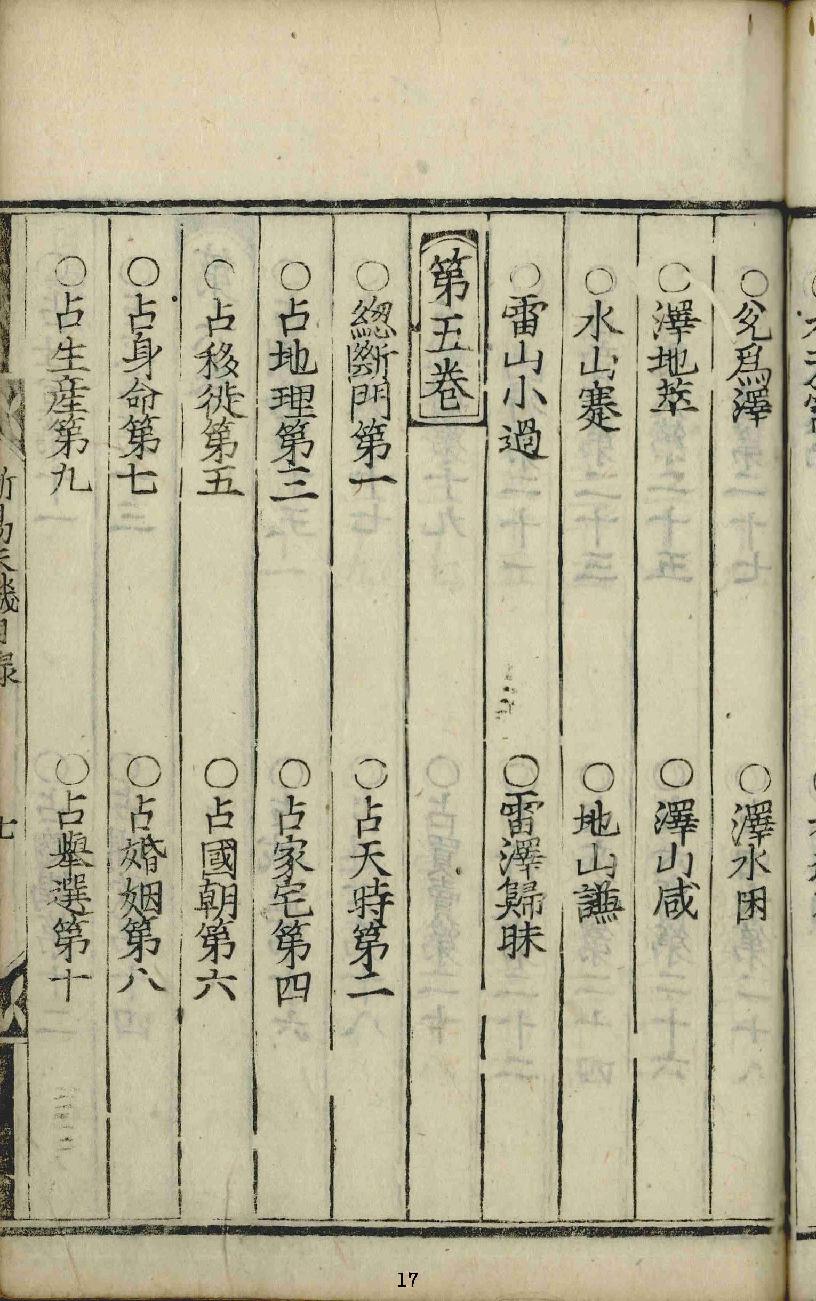 ○兌爲澤　○澤水困
○澤地萃　○澤山咸
○水山蹇　○地山謙
○雷山小過　○雷澤歸昧
第五卷
○緫斷門第一　○占天時第二
○占地理第三　○占家宅第四
○占移徙第五　○占國朝第六
○占身命第七　○占婚姻第八
○占生産第九　○占舉選第十
易天機目录
七
17